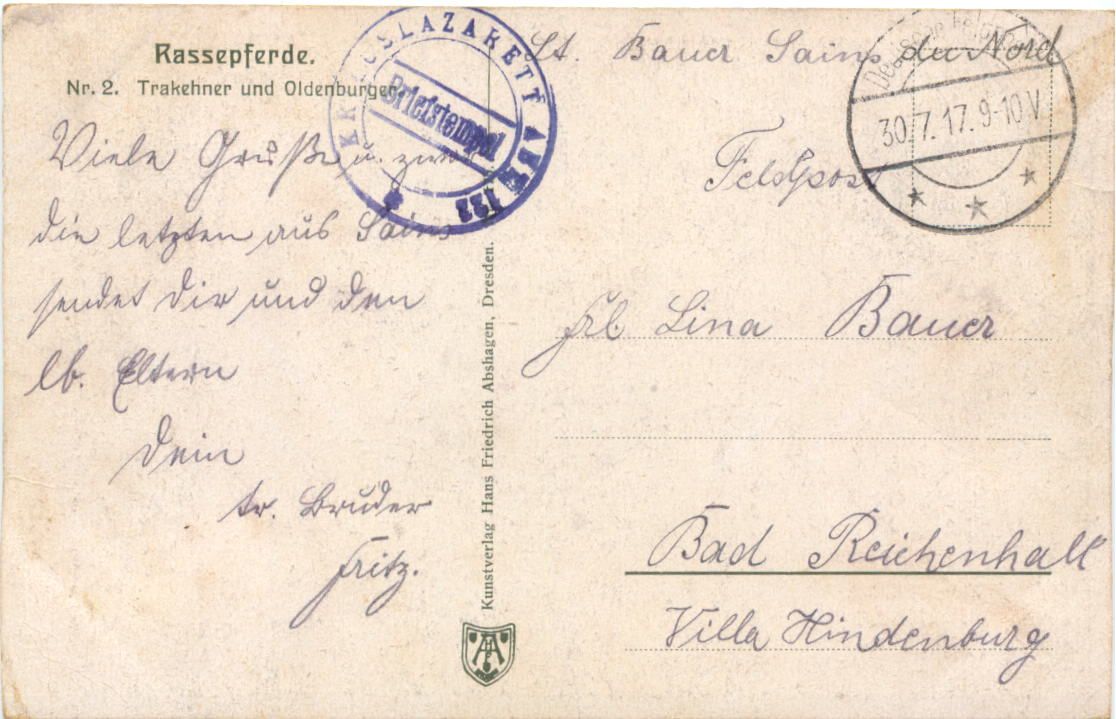 Rassepferde.
Nr. 2. Trakehner und Oldenburger.
Viele Grüße u. zwar
die letzten aus Sains
sendet Dir und den
lb. Eltern
Dein
tr. Bruder
Fritz.
KRIEGSLAZARETT ABT. 122
Briefstempel
Kunstverlag Hans Friedrich Abshagen, Dresden.
Lt. Bauer Sains du Nord
Deutsche Feldpost
30.7.17.9-10V
Feldpost
Frl. Lina Bauer
Bad Reichenhall
Villa Hindenburg